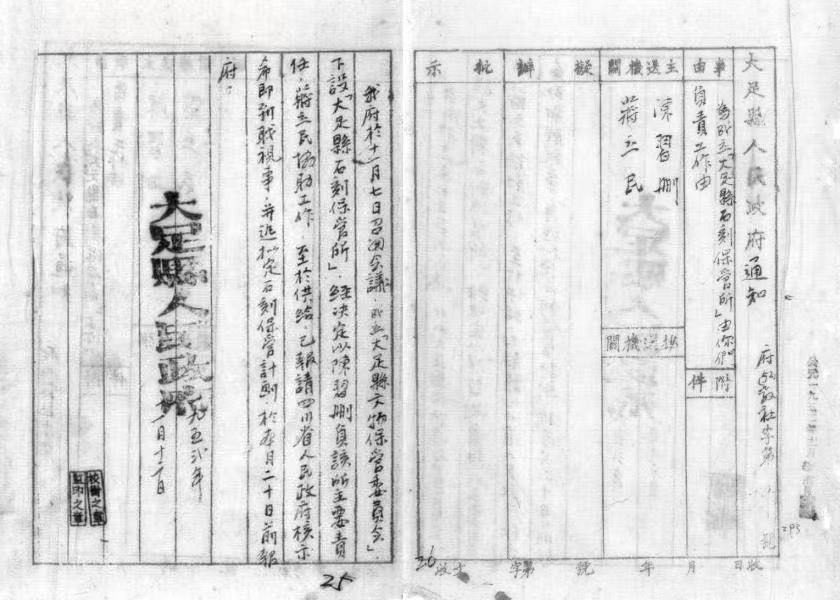 大足縣人民政府通知
事由
為成立「大足縣石刻保管所」由你們
負責工作由
附件
主送機關
陳習刪
蔣立民
抄送機關
擬辦
批示
收文 字第 號 年 月 日收
我府於十一月七日召開會議，成立「大足縣文物保管委員會」，
下設「大足縣石刻保管所」，经决定以陳習刪負該所主要責
任，蔣立民協助工作，至於供给，已報請四川省人民政府核示
希即到職視事，并迅拟定石刻保管計劃於本月二十日前報
府。
大足縣人民政府
一九五二年
十一月十一日
校對之章
監印之章
25
26
293